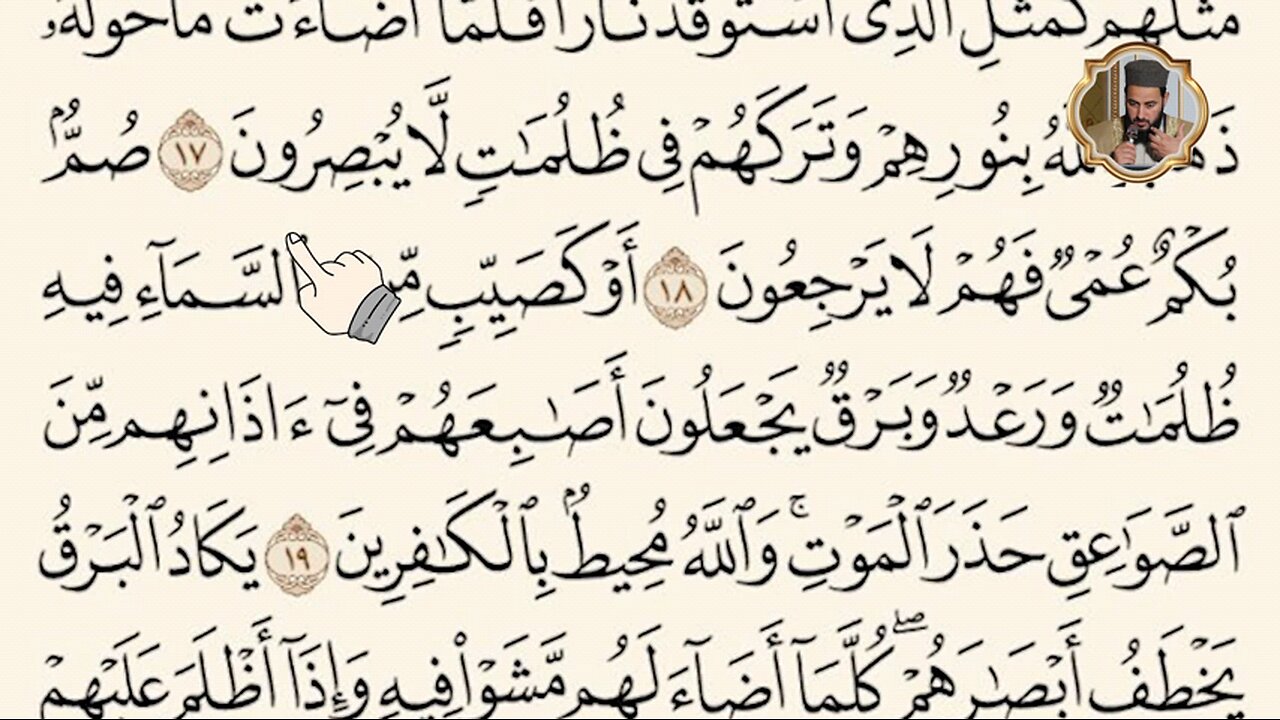 مَثَلُهُمْ كَمَثَلِ ٱلَّذِى ٱسْتَوْقَدَ نَارًا فَلَمَّآ أَضَآءَتْ مَا حَوْلَهُۥ
بِنُورِهِمْ وَتَرَكَهُمْ فِى ظُلُمَـٰتٍ لَّا يُبْصِرُونَ ١٧ صُمٌّۢ
بُكْمٌ عُمْىٌ فَهُمْ لَا يَرْجِعُونَ ١٨ أَوْ كَصَيِّبٍ ٱلسَّمَآءِ فِيهِ
ظُلُمَـٰتٌ وَرَعْدٌ وَبَرْقٌ يَجْعَلُونَ أَصَـٰبِعَهُمْ فِىٓ ءَاذَانِهِم مِّنَ
ٱلصَّوَٰعِقِ حَذَرَ ٱلْمَوْتِ ۚ وَٱللَّهُ مُحِيطٌۢ بِٱلْكَـٰفِرِينَ ١٩ يَكَادُ ٱلْبَرْقُ
يَخْطَفُ أَبْصَـٰرَهُمْ ۖ كُلَّمَآ أَضَآءَ لَهُم مَّشَوْا۟ فِيهِ وَإِذَآ أَظْلَمَ عَلَيْهِمْ